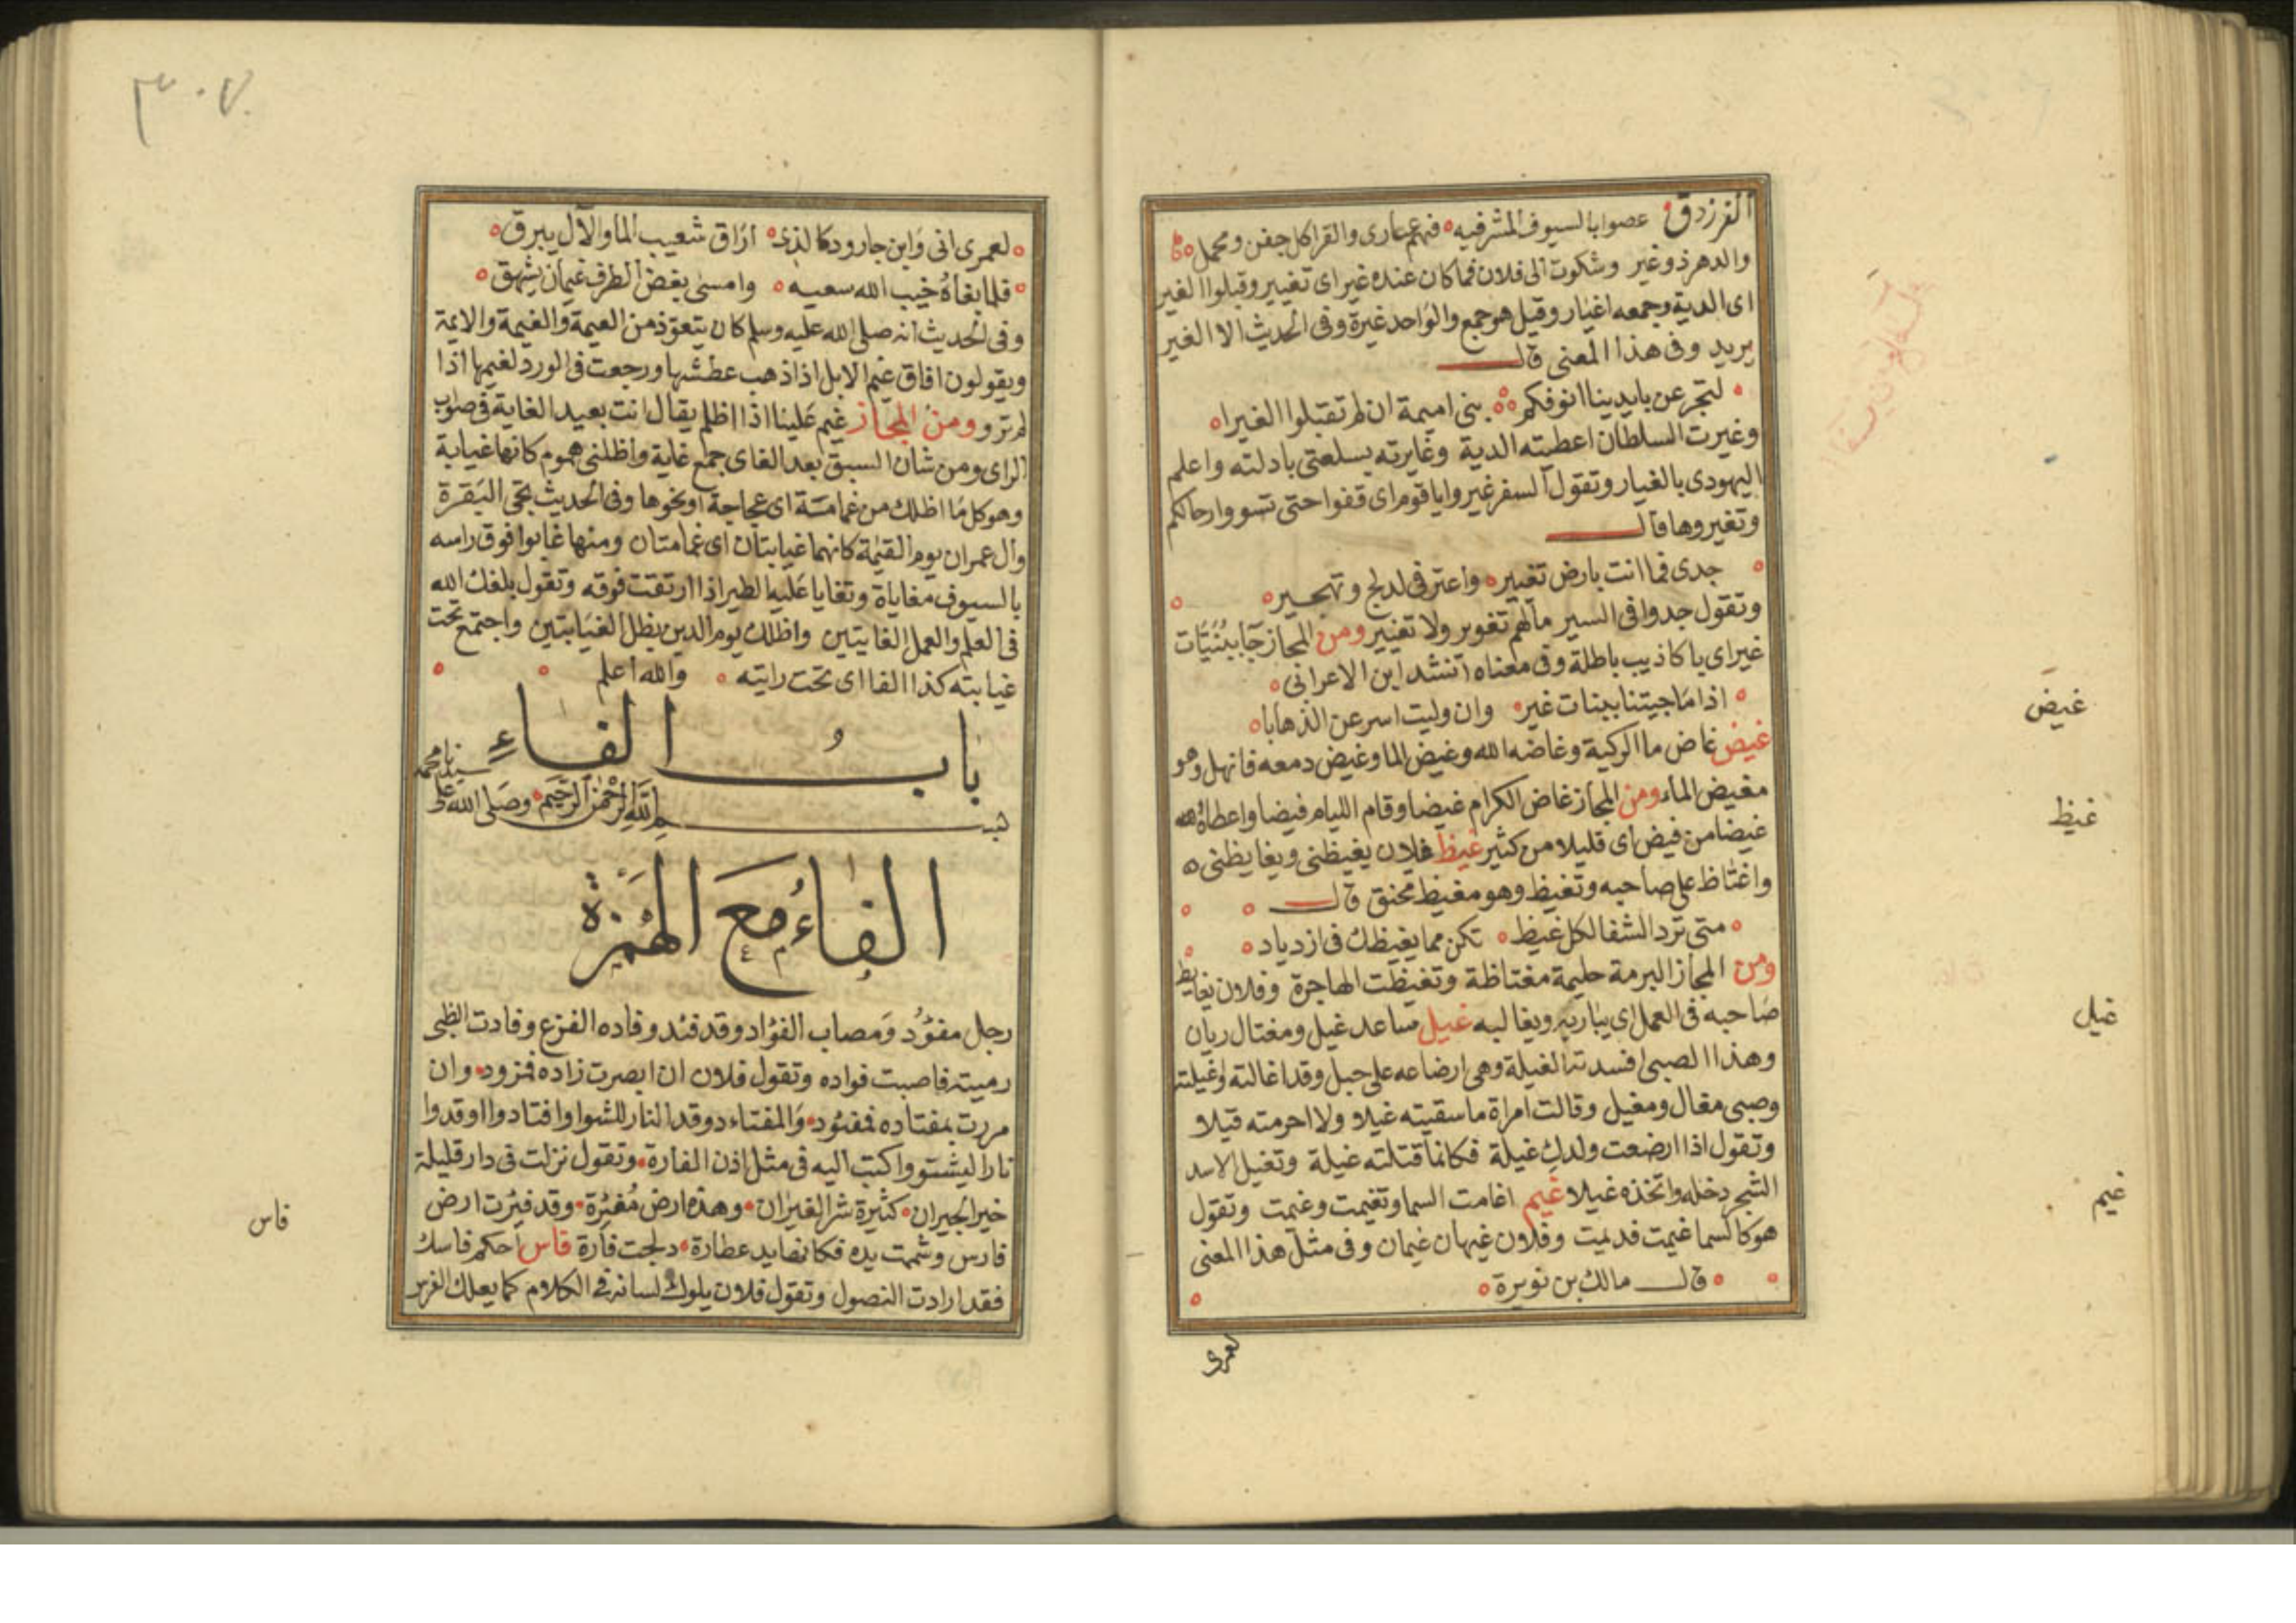 الفرزدق عصوا بالسيوف المشرفيه فيهم غيارى والقوا كل جفن ومحمل
والدهر ذو غير وشكوت الى فلان فما كان عنده غير اى تغيير وقبلوا الغير
اى الدية وجمعه اغيار وقيل هو جمع والواحد غيرة وفى الحديث الا الغير
يريد وفى هذا المعنى قال
لتجر عن بايدينا انوفكم بنى اميمة ان لم تقبلوا الغيرا
وغيرت السلطان اعطيته الدية وغايرته بسلعتى بادلته واعلم
اليهودى بالغيار وتقول السفر غيروا يا قوم اى قفوا حتى تسووا رحالكم
وتغيروها قال
جدى فما انت بارض تغيير واعترفى لدلج وتهجير
وتقول جدوا فى السير ما لهم تغوير ولا تغيير ومن المجاز جا ببنيات
غير اى باكاذيب باطلة وفى معناه انشد ابن الاعرابى
اذا ما جيتنا ببنات غير وان وليت اسرعن الذهابا
غيض غاض ما الركية وغاضه الله وغيض الما وغيض دمعه فانهل وهو
مغيض الماء ومن المجاز غاض الكرام غيضا وقام الليام فيضا واعطاه
غيضا من فيض اى قليلا من كثير غيظ فلان يغيظنى ويغايظنى
واغتاظ على صاحبه وتغيظ وهو مغيظ محنق قال
متى ترد الشفا لكل غيظ تكن مما يغيظك فى ازدياد
ومن المجاز البرمة حليمة مغتاظة وتغيظت الهاجرة وفلان يغايظ
صاحبه فى العمل اى يباريه ويغالبه غيل ساعد غيل ومغتال ريان
وهذا الصبى افسدته الغيلة وهى ارضاعه على حبل وقد اغالته واغيلته
وصبى مغال ومغيل وقالت امراة ما سقيته غيلا ولا احرمته قيلا
وتقول اذا ارضعت ولدك غيلة فكانما قتلته غيلة وتغيل الاسد
الشجر دخله واتخذه غيلا غيم اغامت السما وتغيمت وغيمت وتقول
هو كالسما غيمت فديمت وفلان غيهان غيمان وفى مثل هذا المعنى
قال مالك بن نويرة
لعمرى
غيض
غيظ
غيل
غيم
٣٠٧
لعمرى انى وابن جارود كالذى اراق شعيب الما والال يبرق
فلما بغاه خيب الله سعيه وامسى يغض الطرف غيمان يشهق
وفى الحديث انه صلى الله عليه وسلم كان يتعوذ من العيمة والغيمة والايمة
ويقولون افاق غيم الابل اذا ذهب عطشها ورجعت فى الورد لغيمها اذا
لم ترو ومن المجاز غيم علينا اذا اظلم يقال انت بعيد الغاية فى صواب
الراى ومن شان السبق بعد الغاى جمع غاية واظلنى هموم كانها غيابة
وهو كل ما اظلك من غمامة اى عجاجة او نحوها وفى الحديث تجى البقرة
وال عمران يوم القيمة كانهما غيابتان اى غمامتان ومنها غايوا فوق راسه
بالسيوف مغاياة وتغايا عليه الطير اذا ارتقت فوقه وتقول بلغك الله
فى العلم والعمل الغايتين واظلك يوم الدين بظل الغيابتين واجتمع تحت
غيابته كذا الفا اى تحت رايته والله اعلم
باب الفاء
بسم الله الرحمن الرحيم وصلى الله على سيدنا محمد
الفاء مع الهمزة
رجل مفؤد ومصاب الفؤاد وقد فئد وفاده الفزع وفادت الظبى
رميته فاصبت فواده وتقول فلان ان ابصرت زاده فمزود وان
مررت بمفتاده فمفئود والمفتاد موقد النار للشوا وافتادوا اوقدوا
نارا ليشتووا كبت اليه فى مثل اذن الفارة وتقول نزلت فى دار قليلة
خير الجيران كثيرة شر الفيران وهذه ارض مفئرة وقد فئرت ارض
فارس وشمت يده فكانها يد عطارة دبجت فارة فاس احكم فاسك
فقد ارادت النصول وتقول فلان يلوك لسانه فى الكلام كما يعلك الفرس
فاس